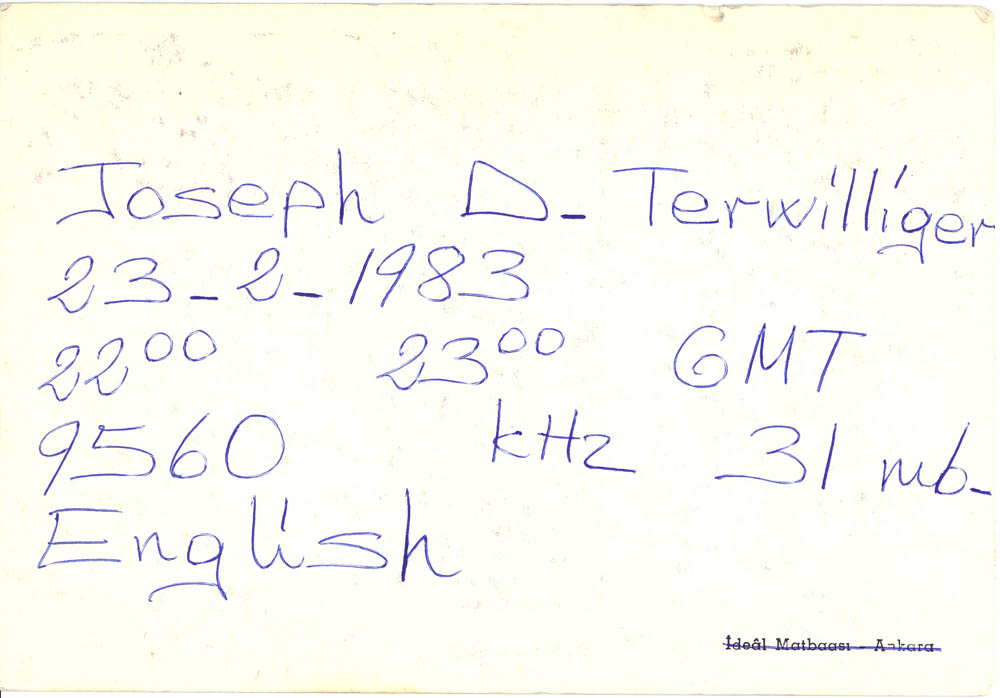 Joseph D. Terwilliger
23-2-1983
22⁰⁰ 23⁰⁰ GMT
9560 kHz 31 mb.
English
İdeâl Matbaası - Ankara